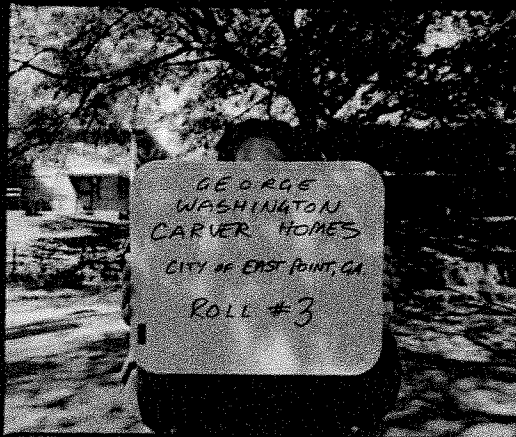 GEORGE
WASHINGTON
CARVER HOMES
CITY OF EAST POINT, GA.
ROLL #3